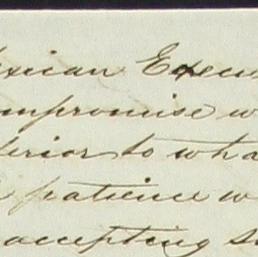 xican Execu
mpromise w
erior to wha
patience w
accepting s